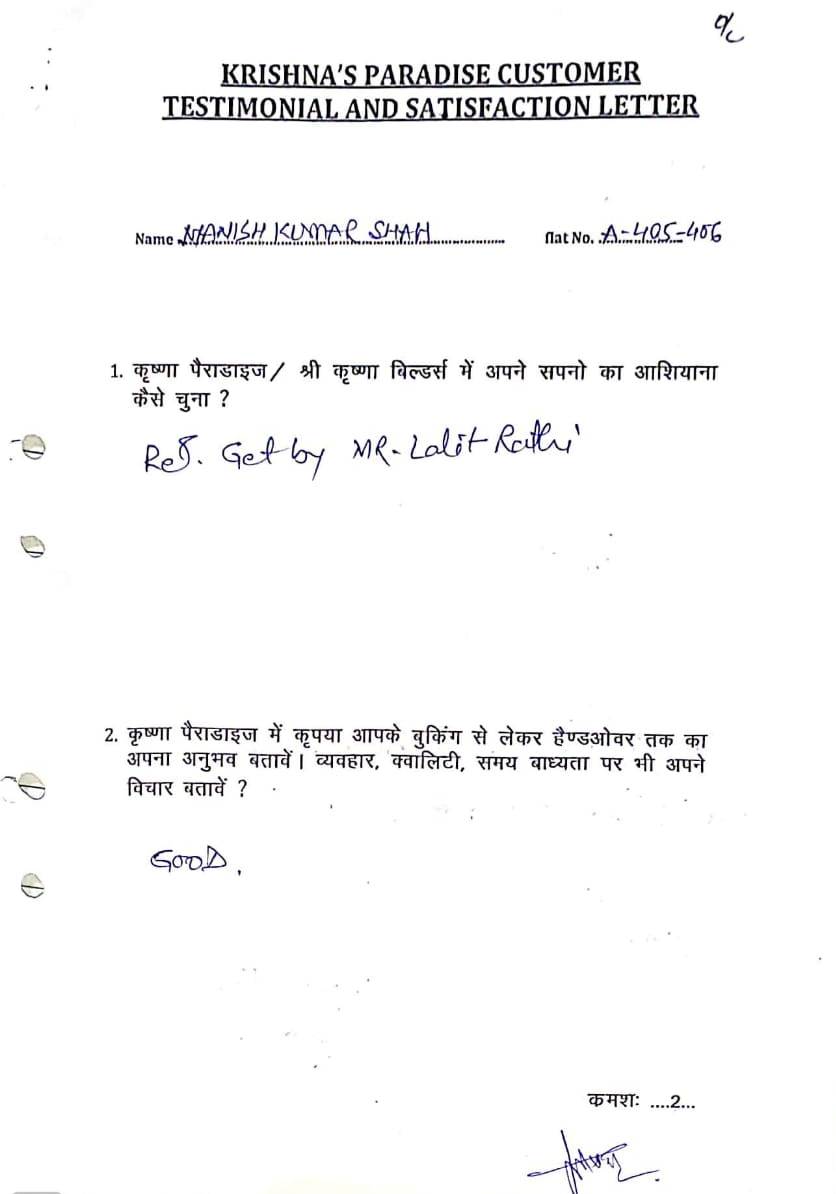 O/c
KRISHNA'S PARADISE CUSTOMER
TESTIMONIAL AND SATISFACTION LETTER
Name MANISH KUMAR SHAH flat No. A-405-406
1. कृष्णा पैराडाइज/ श्री कृष्णा बिल्डर्स में अपने सपनो का आशियाना
कैसे चुना ?
Ref. Get by MR. Lalit Rathi
2. कृष्णा पैराडाइज में कृपया आपके बुकिंग से लेकर हैण्डओवर तक का
अपना अनुभव बतावें। व्यवहार, क्वालिटी, समय बाध्यता पर भी अपने
विचार बतावें ?
GOOD.
कमशः ....2...